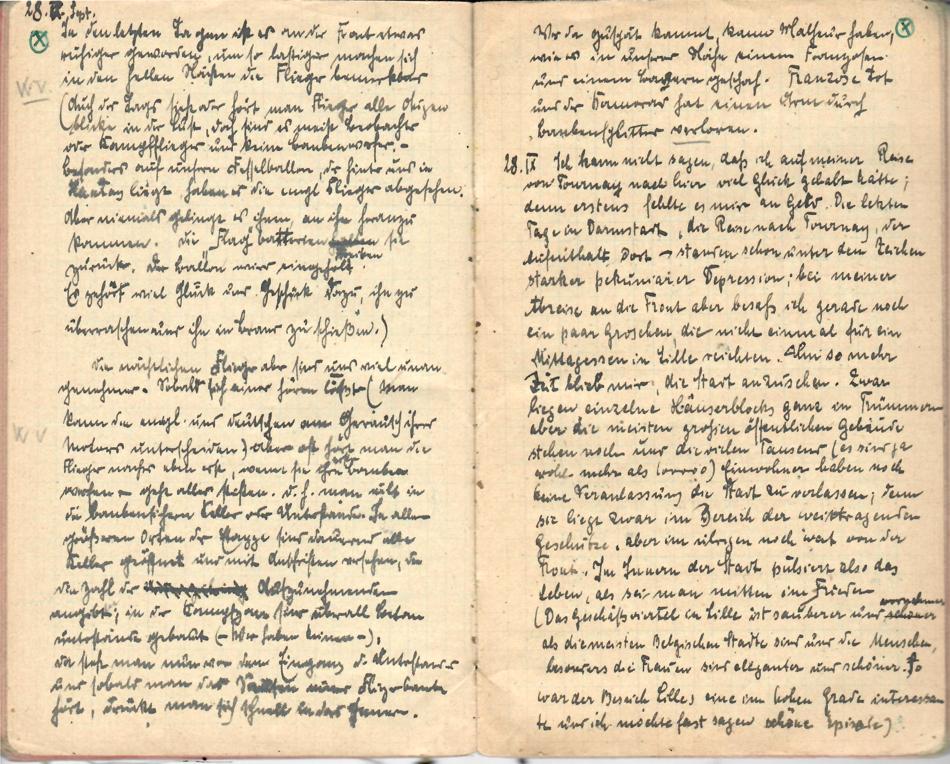 28. IX. Sept.
In den letzten Tagen ist es an der Front etwas
ruhiger geworden, um so lästiger machen sich
in den hellen Nächten die Flieger bemerkbar
(Auch der Tags sieht oder hört man Flieger alle Augen
blicke in der Luft, doch sind es meist Beobachts
oder Kampfflieger und keine Bombenwerfer, –
besonders auf unsern Fesselballon, der hinter uns in
liegt, haben es die engl Flieger abgesehen.
Aber niemals gelingt es ihnen, an ihn heranzu
kommen. Die "Flag" batterien treiben sie
zurück. Der Ballon wird eingeholt.
Es gehört viel Glück und Geschick dazu, ihn zu
überraschen und ihn in Brand zu schießen.)
Die nächtlichen Flieger aber sind uns viel unan
genehmer. Sobald sich einer hören lässt (man
kann den engl. und deutschen am Geräusch ihrer
Motors unterscheiden) aber oft hört man die
Flieger nachts eben erst, wenn sie ihre Bomben
werfen – geht alles stiften. d.h. man eilt in
die bombensichern Keller oder Unterstände. In allen
größeren Orten der Etappe sind dauernd alle
Keller geöffnet und mit Aufschriften versehen, die
die Zahl der Aufzunehmenden
angibt; in der Kampfzone sind überall Beton
unterstände gebaut (– Wir haben keinen –),
da steht man nun vor dem Eingang d. Unterstandes
und sobald man das Sausen einer Fliegerbombe
hört, drückt man sich schnell in das Innere.
W.V.
W V
Wer da zu spät kommt, kann Malheur haben,
wie es in unserer Nähe einem Franzosen
und einem Bayern geschah. Franzose tot
und der Kamerad hat einen Arm durch
Bombensplitter verloren.
28. IX Ich kann nicht sagen, daß ich auf meiner Reise
von Tournay nach hier viel Glück gehabt hätte;
denn erstens fehlte es mir an Geld. Die letzten
Tage in Darmstadt, die Reise nach Tournay, der
Aufenthalt dort – standen schon unter den Zeichen
starker pekuniärer Depression; bei meiner
Abreise an die Front aber besaß ich gerade noch
ein paar Groschen, die nicht einmal für ein
Mittagessen in Lille reichten. Um so mehr
Zeit blieb mir, die Stadt anzusehen. Zwar
liegen einzelne Häuserblocks ganz in Trümmern
aber die meisten großen öffentlichen Gebäude
stehen noch und die vielen Tausend (es sind ja
wohl mehr als 100000) Einwohner haben noch
keine Veranlassung die Stadt zu verlassen; denn
sie liegt zwar im Bereich der weittragenden
Geschütze, aber im übrigen noch weit von der
Front. Im Innern der Stadt pulsiert also das
Leben, als sei man mitten im Frieden
(Das Geschäftsviertel in Lille ist sauberer und vornehmer
als die meisten Belgischen Städte sind und die Menschen,
besonders die Frauen sind eleganter und schöner. So
war der Besuch Lilles eine im hohen Grade interessan
te und ich möchte fast sagen schöne Episode)